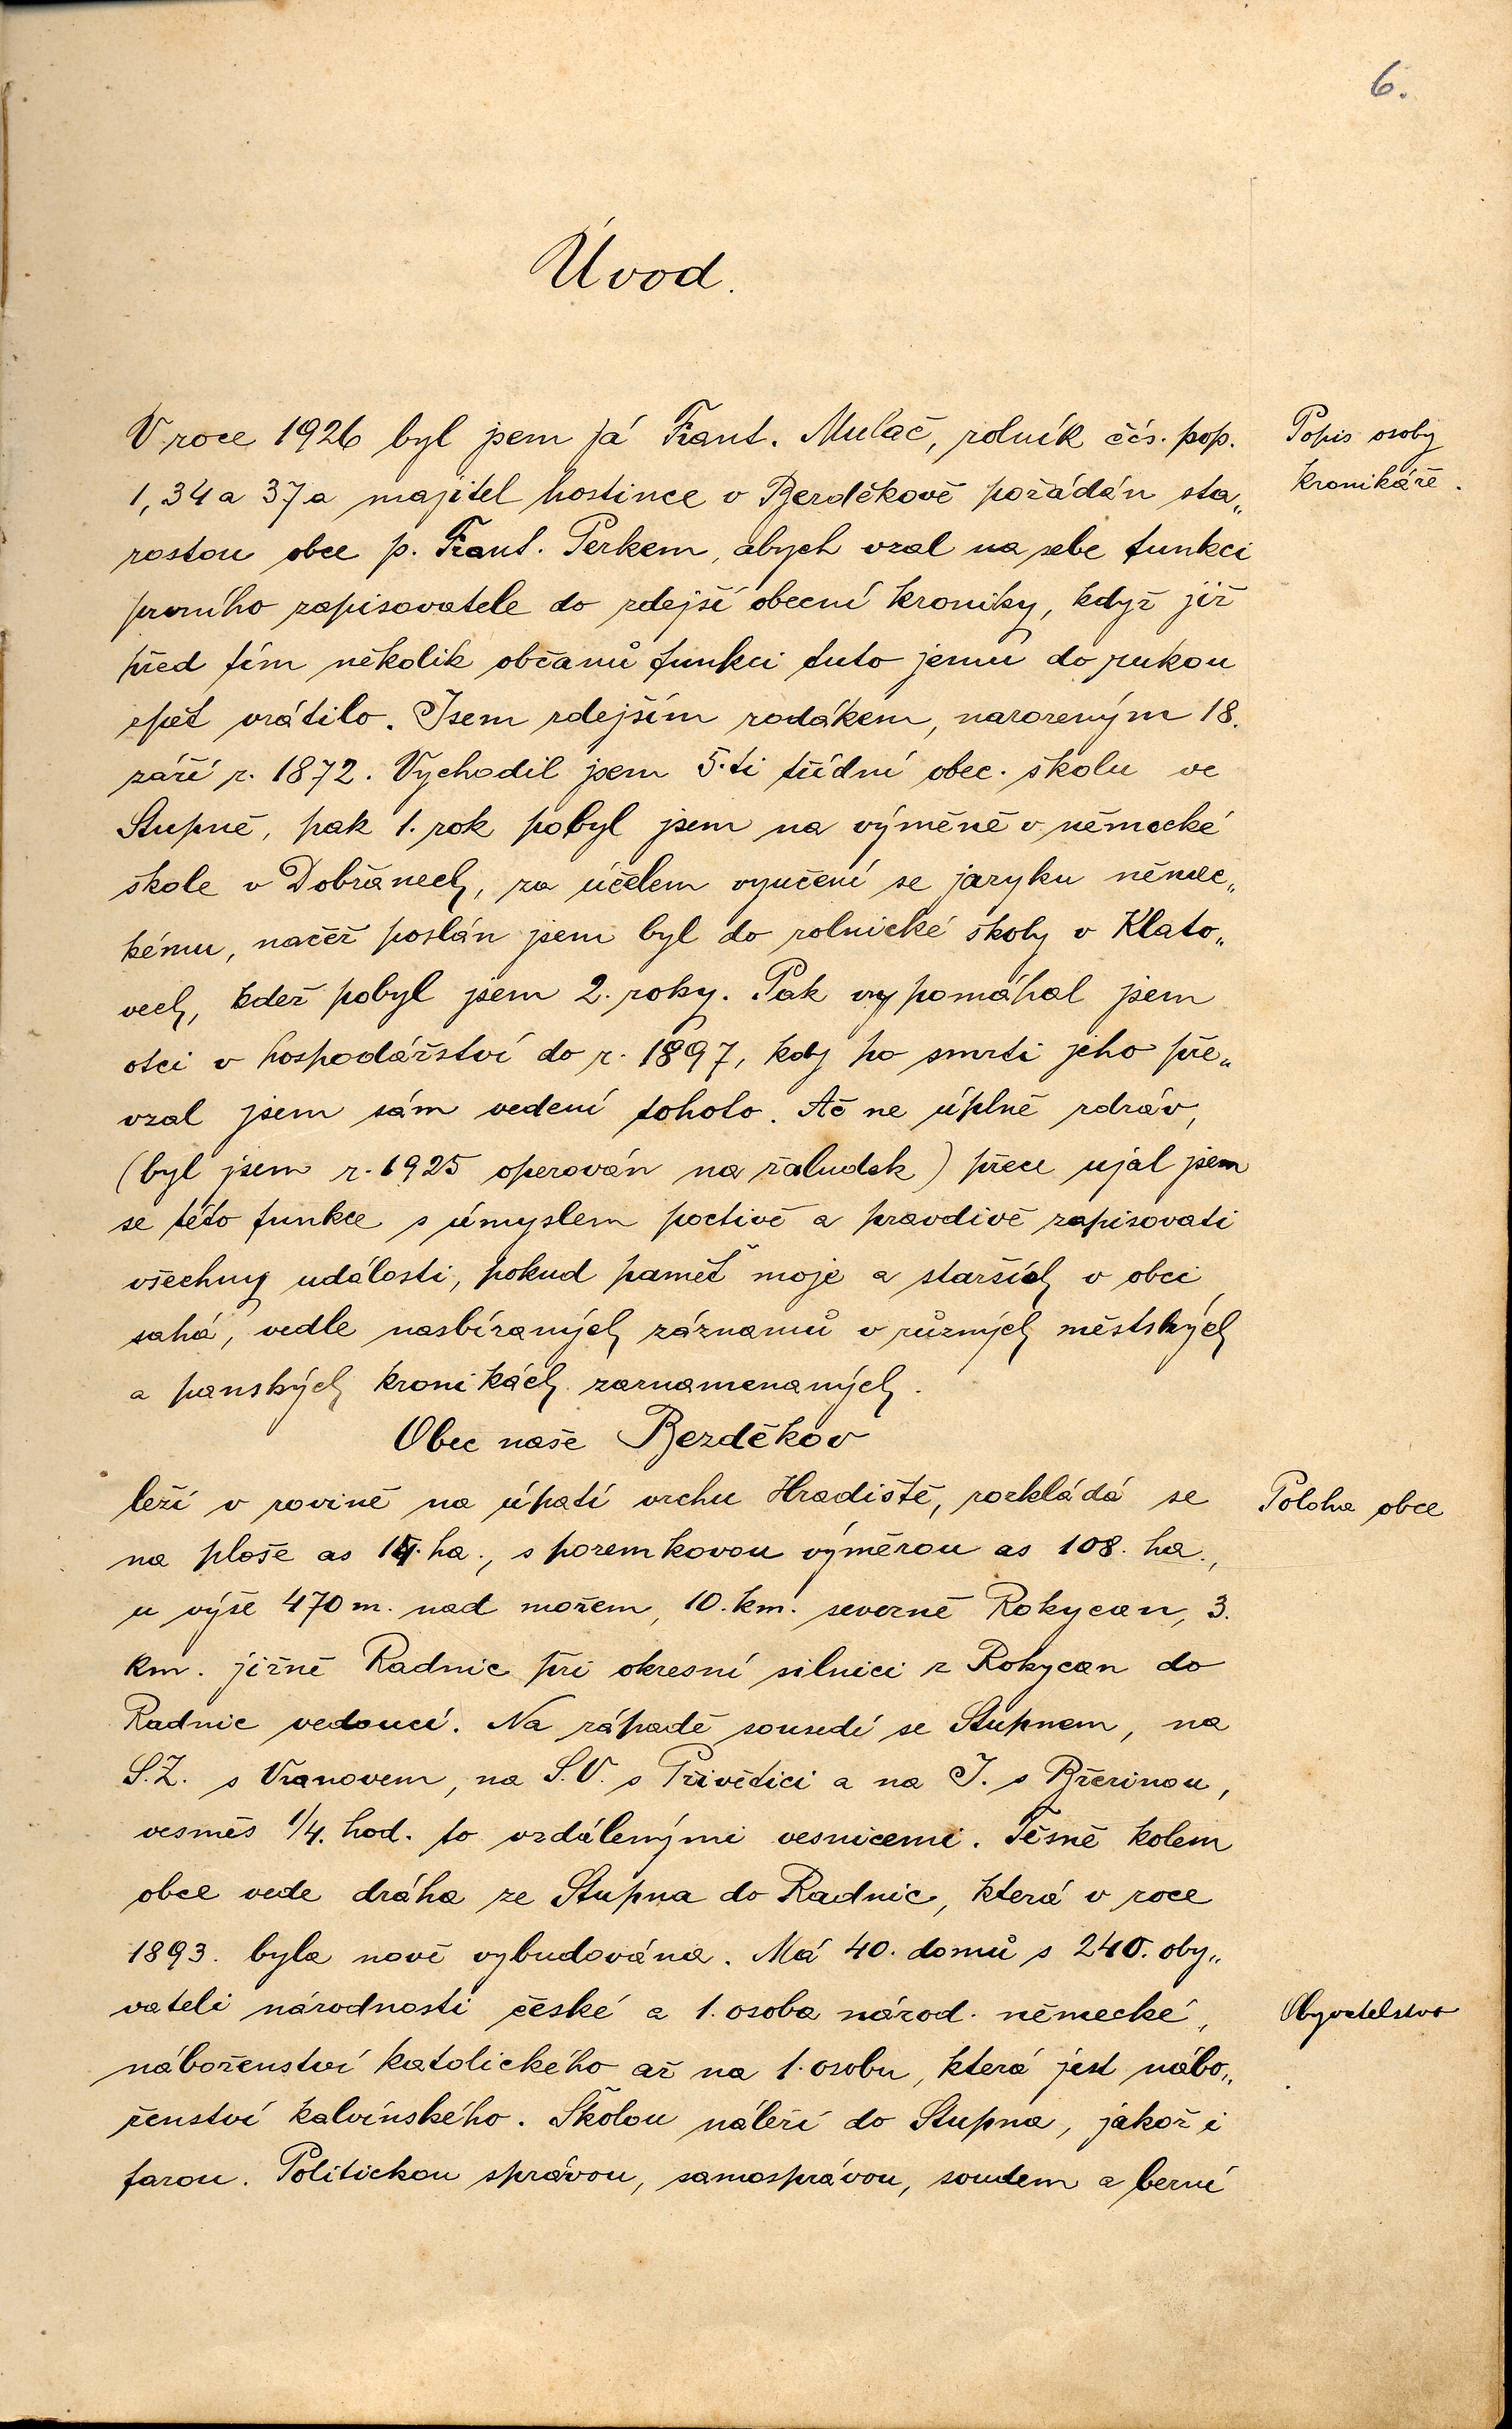 6.
Úvod.
V roce 1926 byl jsem já Frant. Mulač, rolník čís. pop.
Popis osoby
1, 34 a 37 a majitel hostince v Bezděkově požádán sta„
kronikáře.
rostou obce p. Frant. Perkem, abych vzal na sebe funkci
prvního zapisovatele do zdejší obecní kroniky, když již
před tím několik občanů funkci tuto jemu do rukou
zpět vrátilo. Jsem zdejším rodákem, narozeným 18.
září r. 1872. Vychodil jsem 5.ti třídní obec. školu ve
Stupně, pak 1. rok pobyl jsem na výměně v německé
škole v Dobřanech, za účelem vyučení se jazyku němec„
kému, načež poslán jsem byl do rolnické školy v Klato„
vech, kdež pobyl jsem 2. roky. Pak vypomáhal jsem
otci v hospodářství do r. 1897, kdy po smrti jeho pře„
vzal jsem sám vedení tohoto. Ač ne úplně zdráv,
(byl jsem r. 1925 operován na žaludek) přece ujal jsem
se této funkce s úmyslem poctivě a pravdivě zapisovati
všechny události, pokud paměť moje a starších v obci
sahá, vedle nasbíraných záznamů v různých městských
a panských kronikách zaznamenaných.
Obec naše Bezděkov
leží v rovině na úpatí vrchu Hradiště, rozkládá se
Poloha obce
na ploše as 14. ha., s pozemkovou výměrou as 108. ha.,
u výše 470 m. nad mořem, 10. km. severně Rokycan, 3.
km. jižně Radnic při okresní silnici z Rokycan do
Radnic vedoucí. Na západě sousedí se Stupnem, na
S.Z. s Vranovem, na S.V. s Přivěticí a na J. s Březinou,
vesměs 1/4. hod. to vzdálenými vesnicemi. Těsně kolem
obce vede dráha ze Stupna do Radnic, která v roce
1893. byla nově vybudována. Má 40. domů s 240. oby„
vateli národnosti české a 1. osoba národ. německé,
Obyvatelstvo
náboženství katolického až na 1. osobu, která jest nábo„
ženství kalvínského. Školou náleží do Stupna, jakož i
farou. Politickou správou, samosprávou, soudem a berní